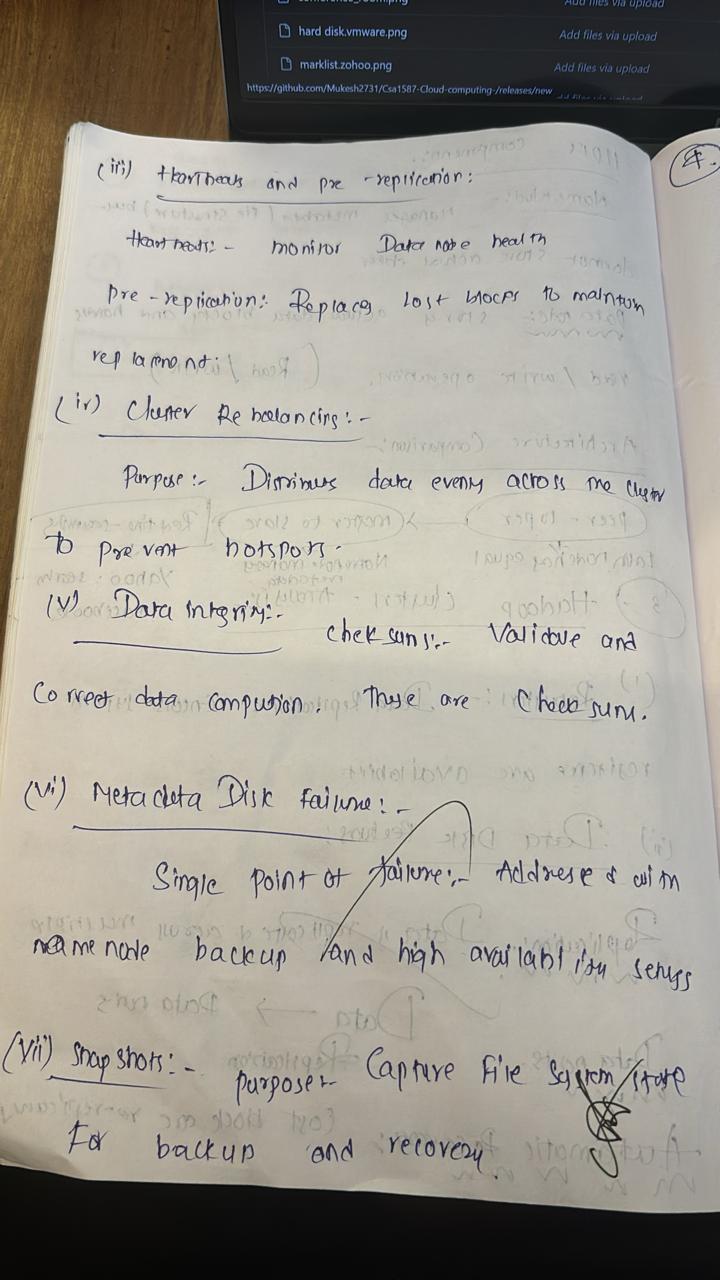 hard disk.vmware.png
Add files via upload
marklist.zohoo.png
Add files via upload
https://github.com/Mukesh2731/Csa1587-Cloud-computing-/releases/new
4.
(iii) Heartbeats and pre-replication:
Heartbeats:- monitor Data node health
pre-replication: Replaces lost blocks to maintain
replamonot:
(iv) Cluster Rebalancing:-
Purpose:- Distributes data evenly across the cluster
to prevent hotspots.
(v) Data integrity:-
chek sums:- Validate and
Correct data corruption. These are Checksum.
(vi) Metadata Disk Failure:-
Single point of failure:- Addressed with
namenode backup and high availability setups
(vii) Snapshots:-
purpose:- Capture File System state
For backup and recovery.